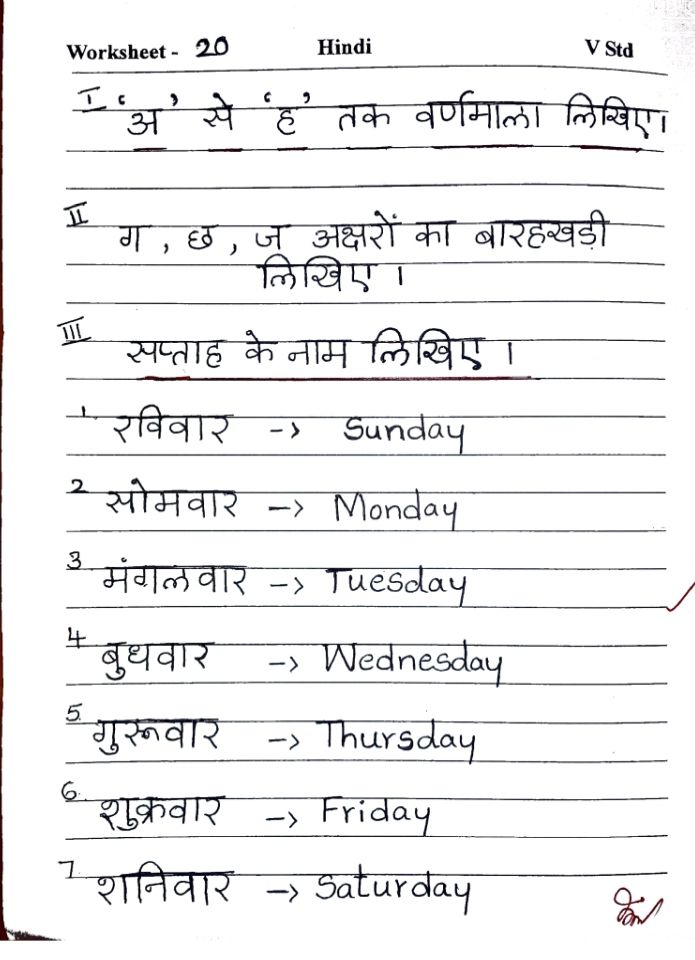 Worksheet - 20 Hindi V Std
I 'अ' से 'ह' तक वर्णमाला लिखिए।
II ग , छ , ज अक्षरों का बारहखड़ी
लिखिए ।
III सप्ताह के नाम लिखिए ।
1 रविवार -> Sunday
2 सोमवार -> Monday
3 मंगलवार -> Tuesday
4 बुधवार -> Wednesday
5. गुरूवार -> Thursday
6. शुक्रवार -> Friday
7. शनिवार -> Saturday